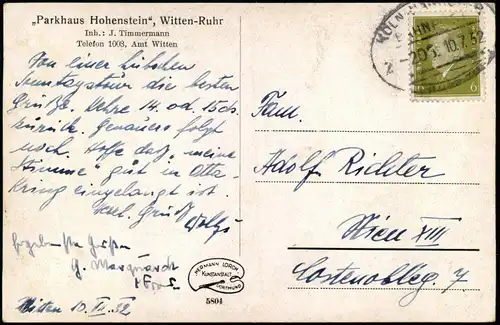 „Parkhaus Hohenstein“, Witten-Ruhr
Inh.: J. Timmermann
Telefon 1003, Amt Witten
Von einer hübschen
Sonntagstour die besten
Grüße. Kehre 14. od. 15ds.
zurück. Genaueres folgt
noch. Hoffe daß „meine
Stimme“ gut in Otta-
kring eingelangt ist.
Herzl. Gruß
Ergebenste Grüße
G. Marquardt
Witten 10. VII. 32
HERMANN LORCH
KUNSTANSTALT
DORTMUND
5804
10.7.32
6
6
Fam.
Adolf Richter
Wien XIII